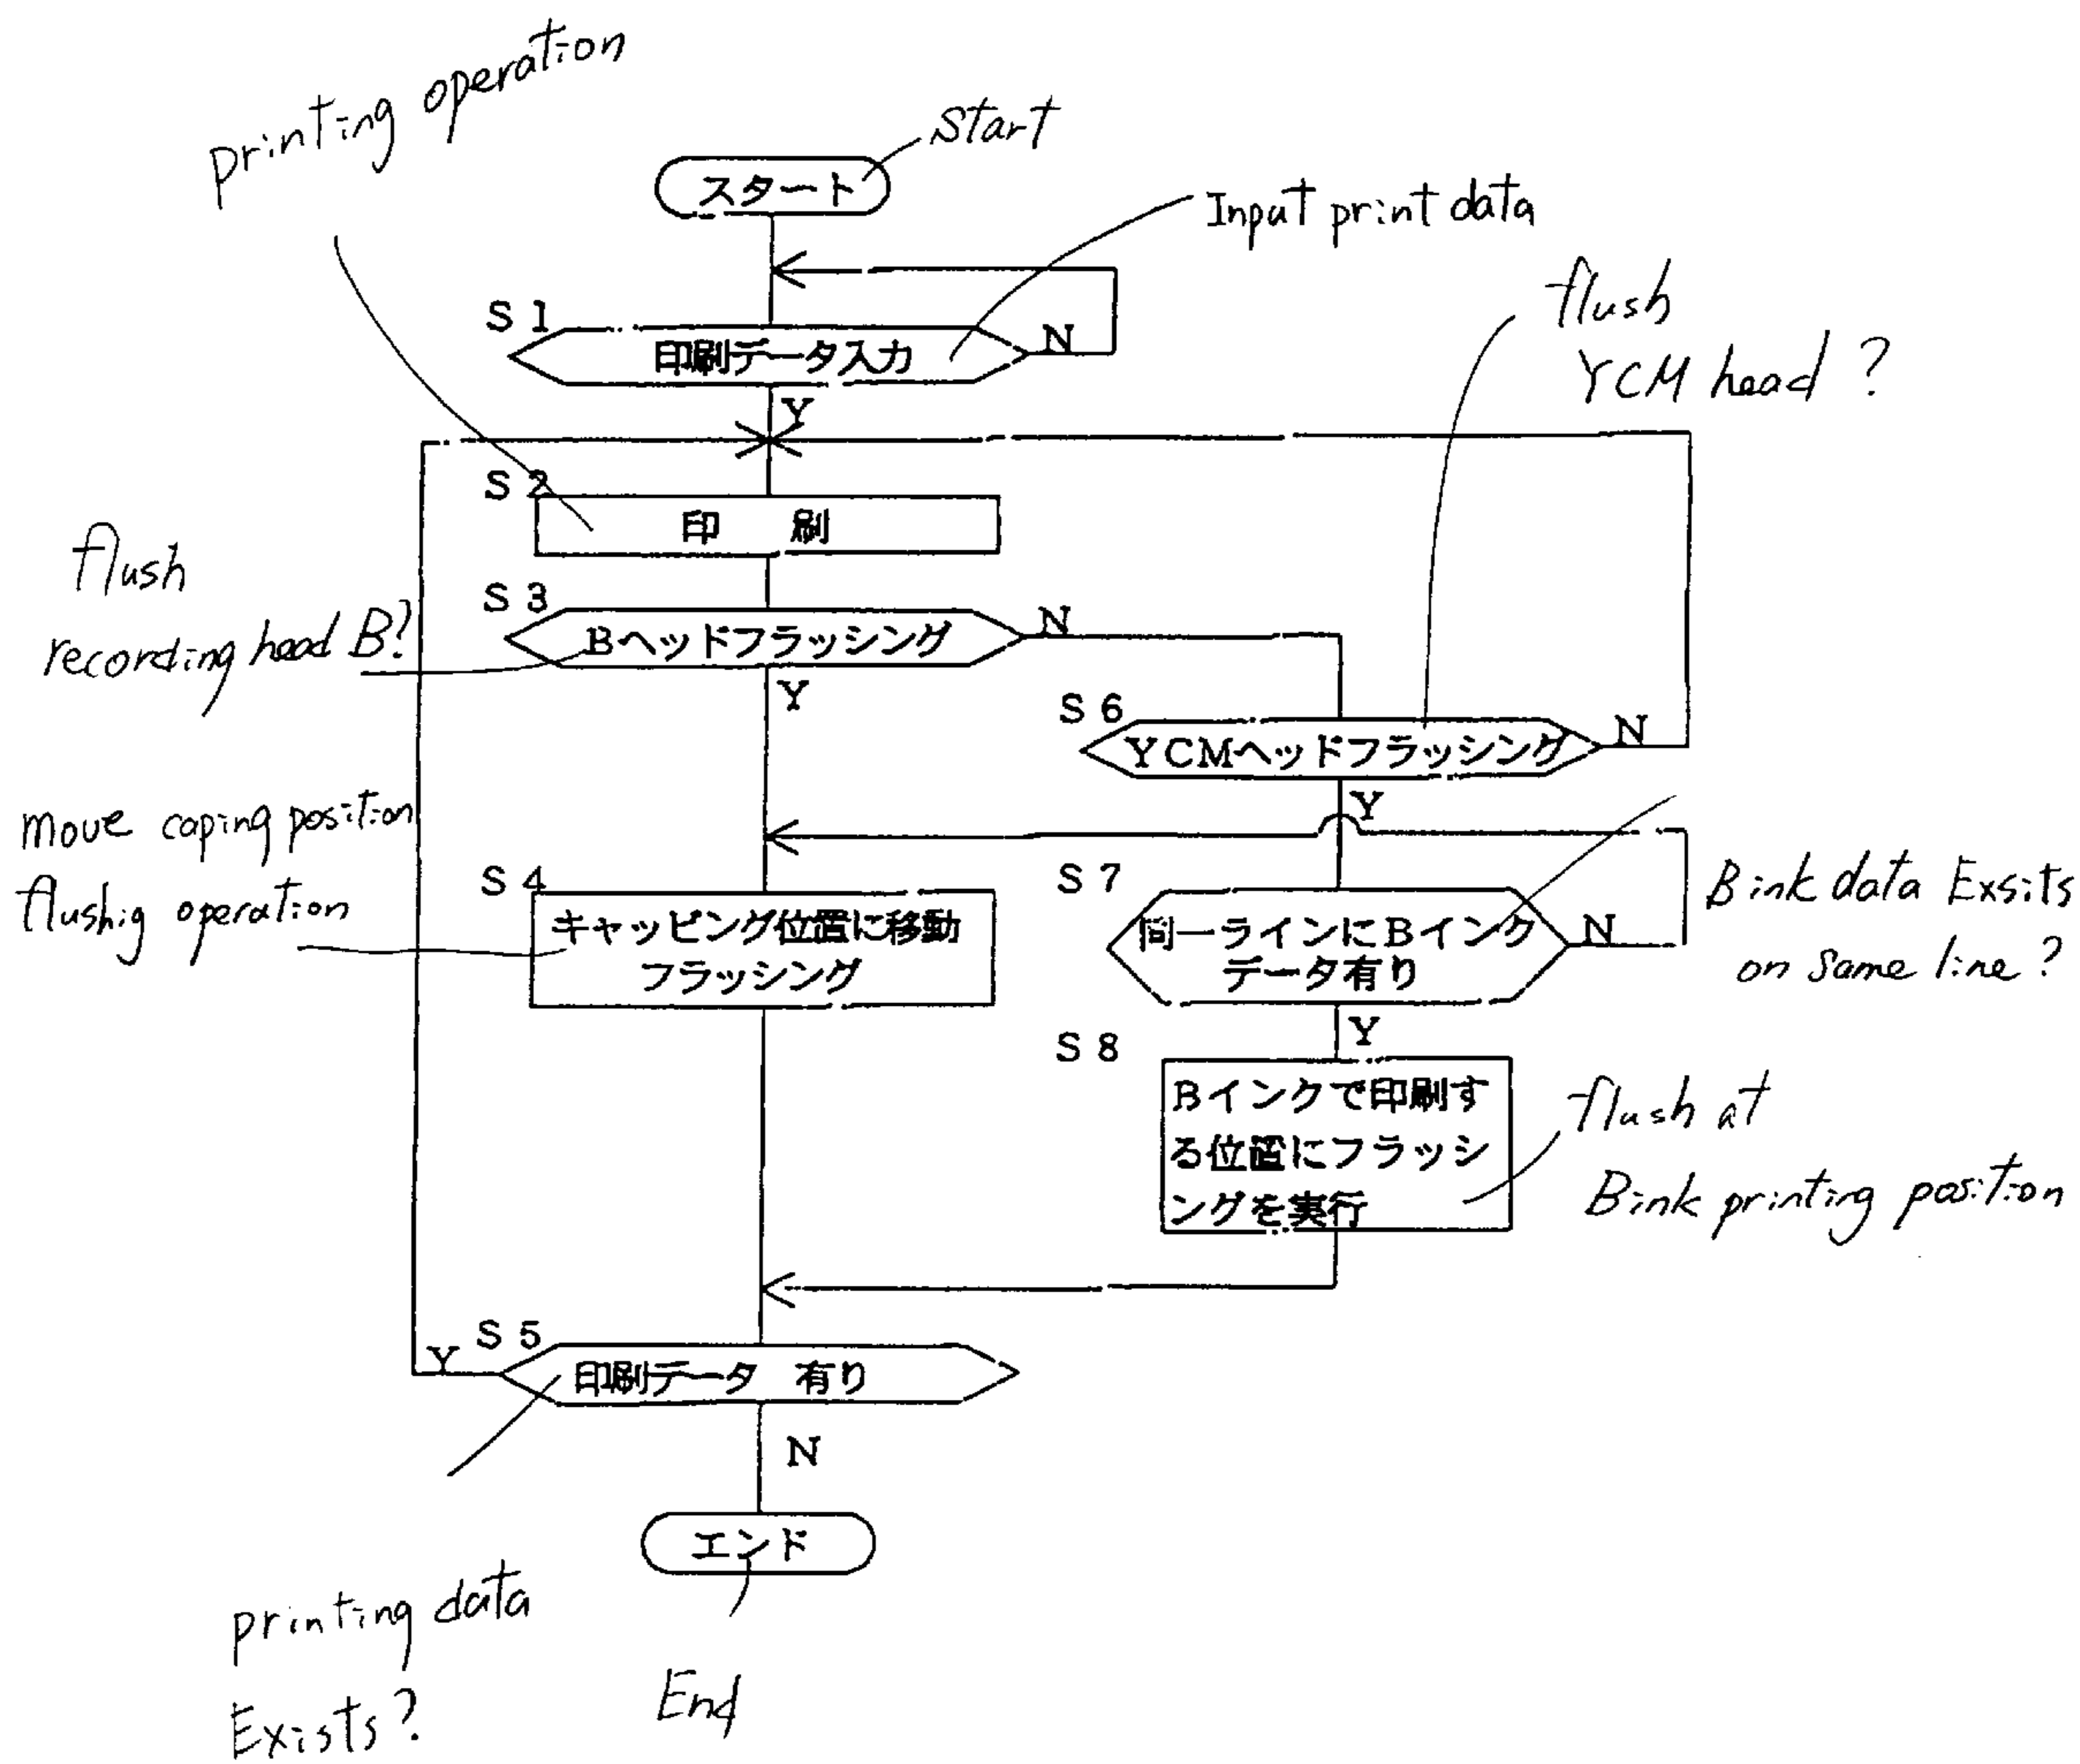 printing operation
Start
スタート
Input print data
S1
印刷データ入力
N
flush
YCM head ?
Y
S2
印　刷
flush
recording head B?
S3
Bヘッドフラッシング
N
Y
S6
YCMヘッドフラッシング
N
Y
move caping position
flushig operation
S4
キャッピング位置に移動
フラッシング
S7
同一ラインにBインク
データ有り
N
Bink data Exsits
on same line ?
Y
S8
Bインクで印刷す
る位置にフラッシ
ングを実行
flush at
Bink printing position
S5
Y
印刷データ　有り
N
エンド
printing data
Exists ?
End